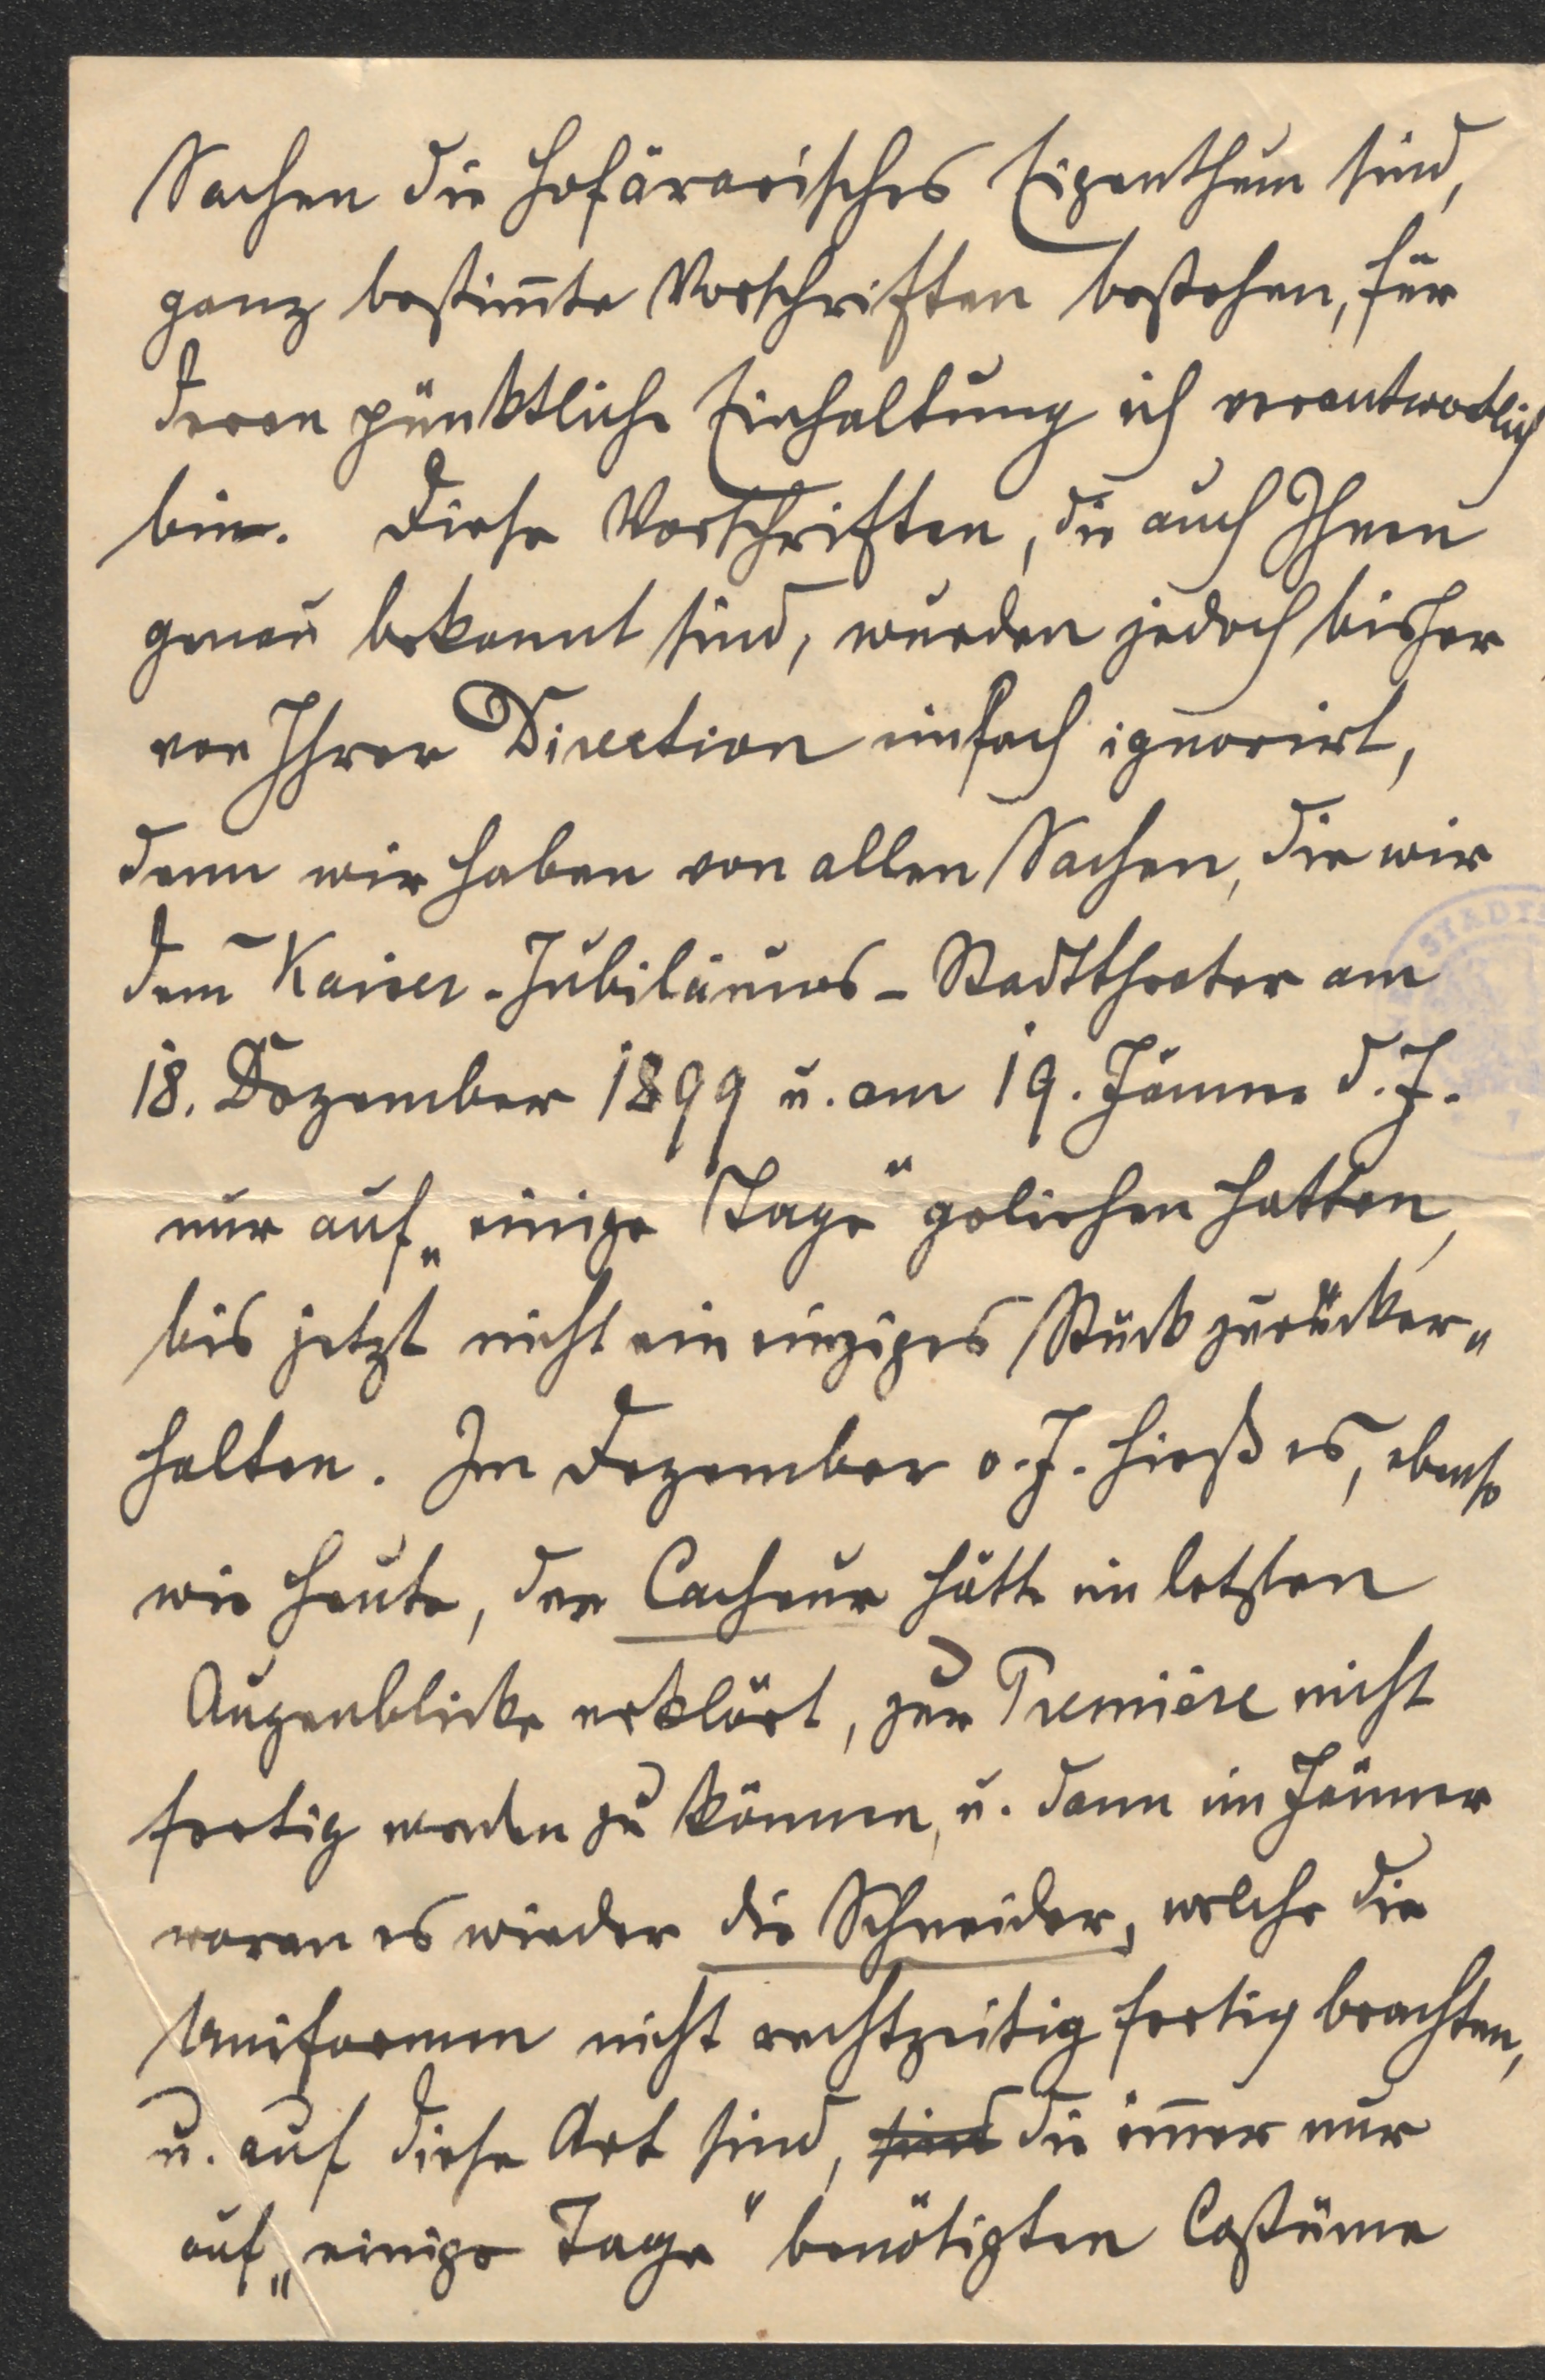 Sachen die hofärarisches Eigenthum sind,
ganz bestim̅te Vorschriften bestehen, für
deren pünktliche Einhaltung ich verantwortlich
bin. Diese Vorschriften, die auch Ihnen
genau bekannt sind, wurden jedoch bisher
von Ihrer Direction einfach ignorirt,
denn wir haben von allen Sachen, die wir
dem Kaiser-Jubiläums-Stadttheater am
18. Dezember 1899 u. am 19. Jänner d. J.
nur auf „einige Tage“ geliehen hatten,
bis jetzt nicht ein einziges Stück zurücker„
halten. Im Dezember v. J. hieß es, ebenso
wie heute, der Cacheur hätte im letzten
Augenblicke erklärt, zur Première nicht
fertig werden zu können, u. dann im Jänner
waren es wieder die Schneider, welche die
Uniformen nicht rechtzeitig fertig brachten,
u. auf diese Art sind, sind die im̅er nur
auf „einige Tage“ benötigten Costüme
STADTS